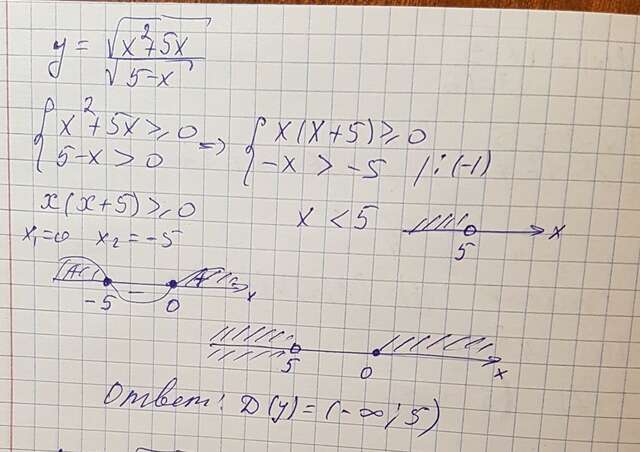 y = √(x²+5x) / √(5-x)
{ x²+5x ≥ 0 => { x(x+5) ≥ 0
{ 5-x > 0 { -x > -5 /:(-1)
x(x+5) ≥ 0
x < 5
5 x
x₁=0 x₂=-5
-5 - 0 x
5 0 x
Ответ: D(y) = (-∞; 5)